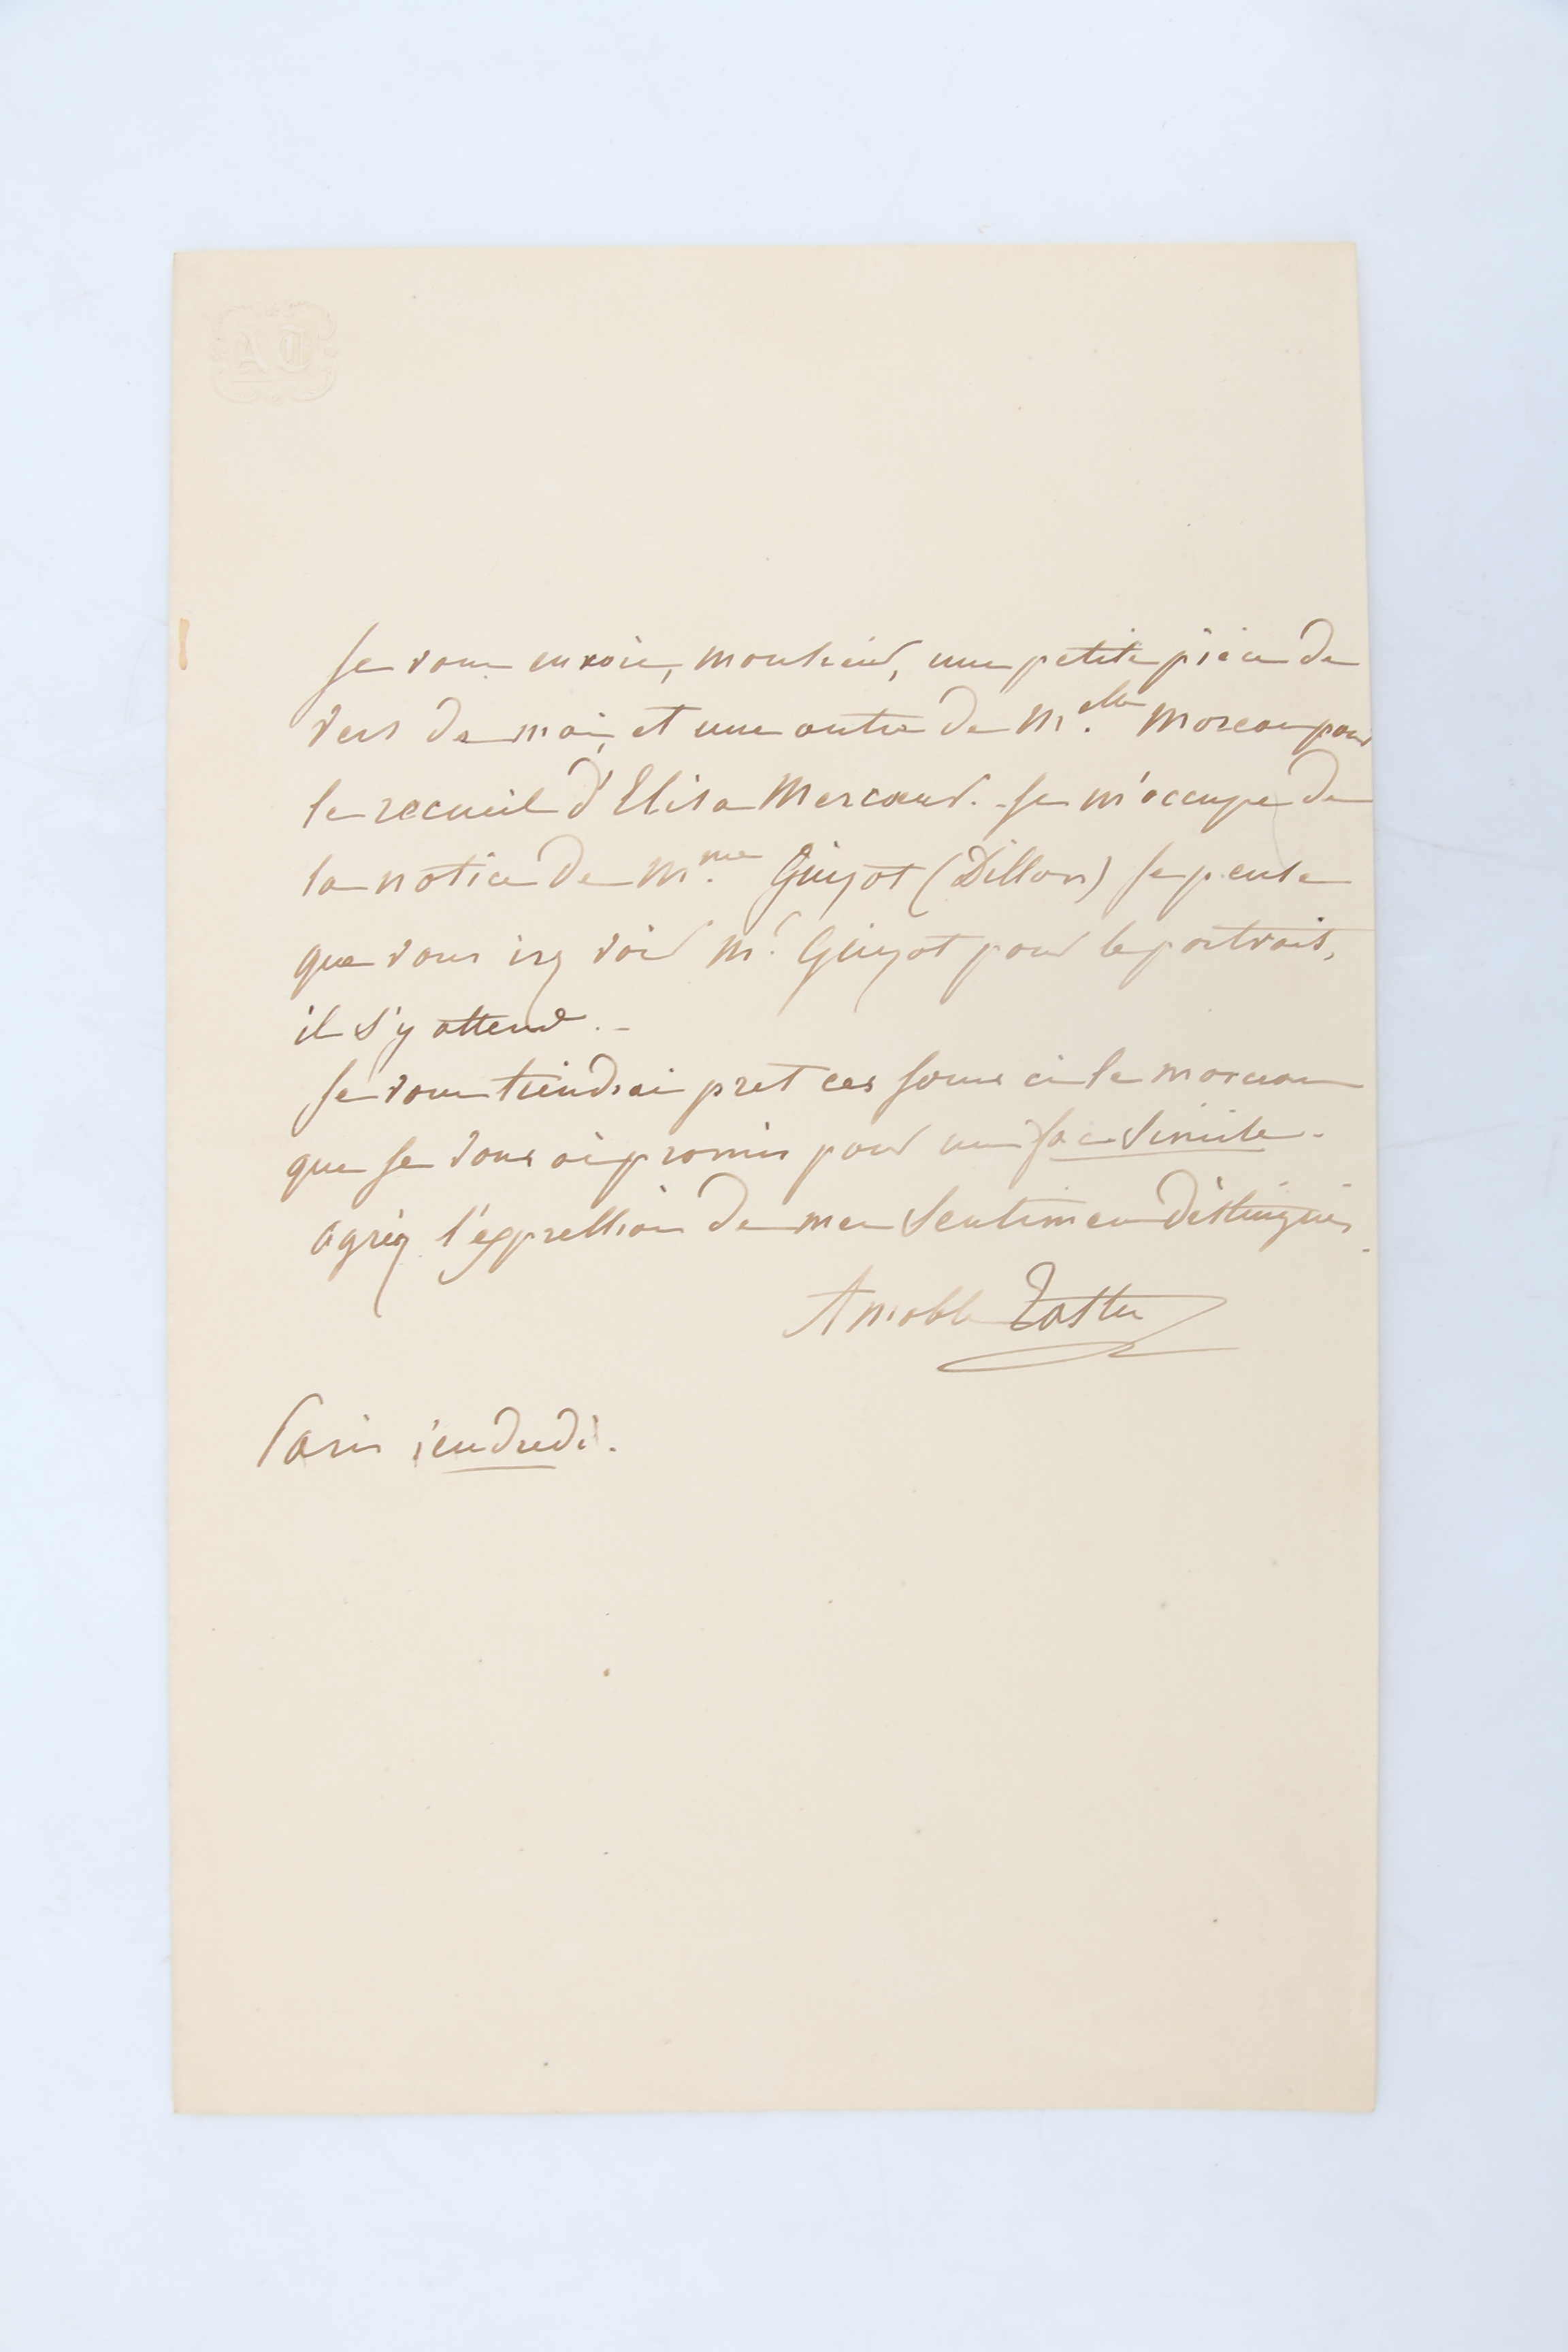 AT
Je vous envoie, monsieur, une petite pièce de
vers de moi, et une autre de M.elle Moreau pour
le recueil d'Elisa Mercœur. - Je m'occupe de
la notice de M.me Guizot (Dillon) Je pense
que vous irez voir M.r Guizot pour le portrait,
il s'y attend. -
Je vous tiendrai pret ces jours ci le morceau
que je vous ai promis pour un fac simile.
agréez l'expression de mes sentimens distingués.
Amable Tastu
Paris vendredi.